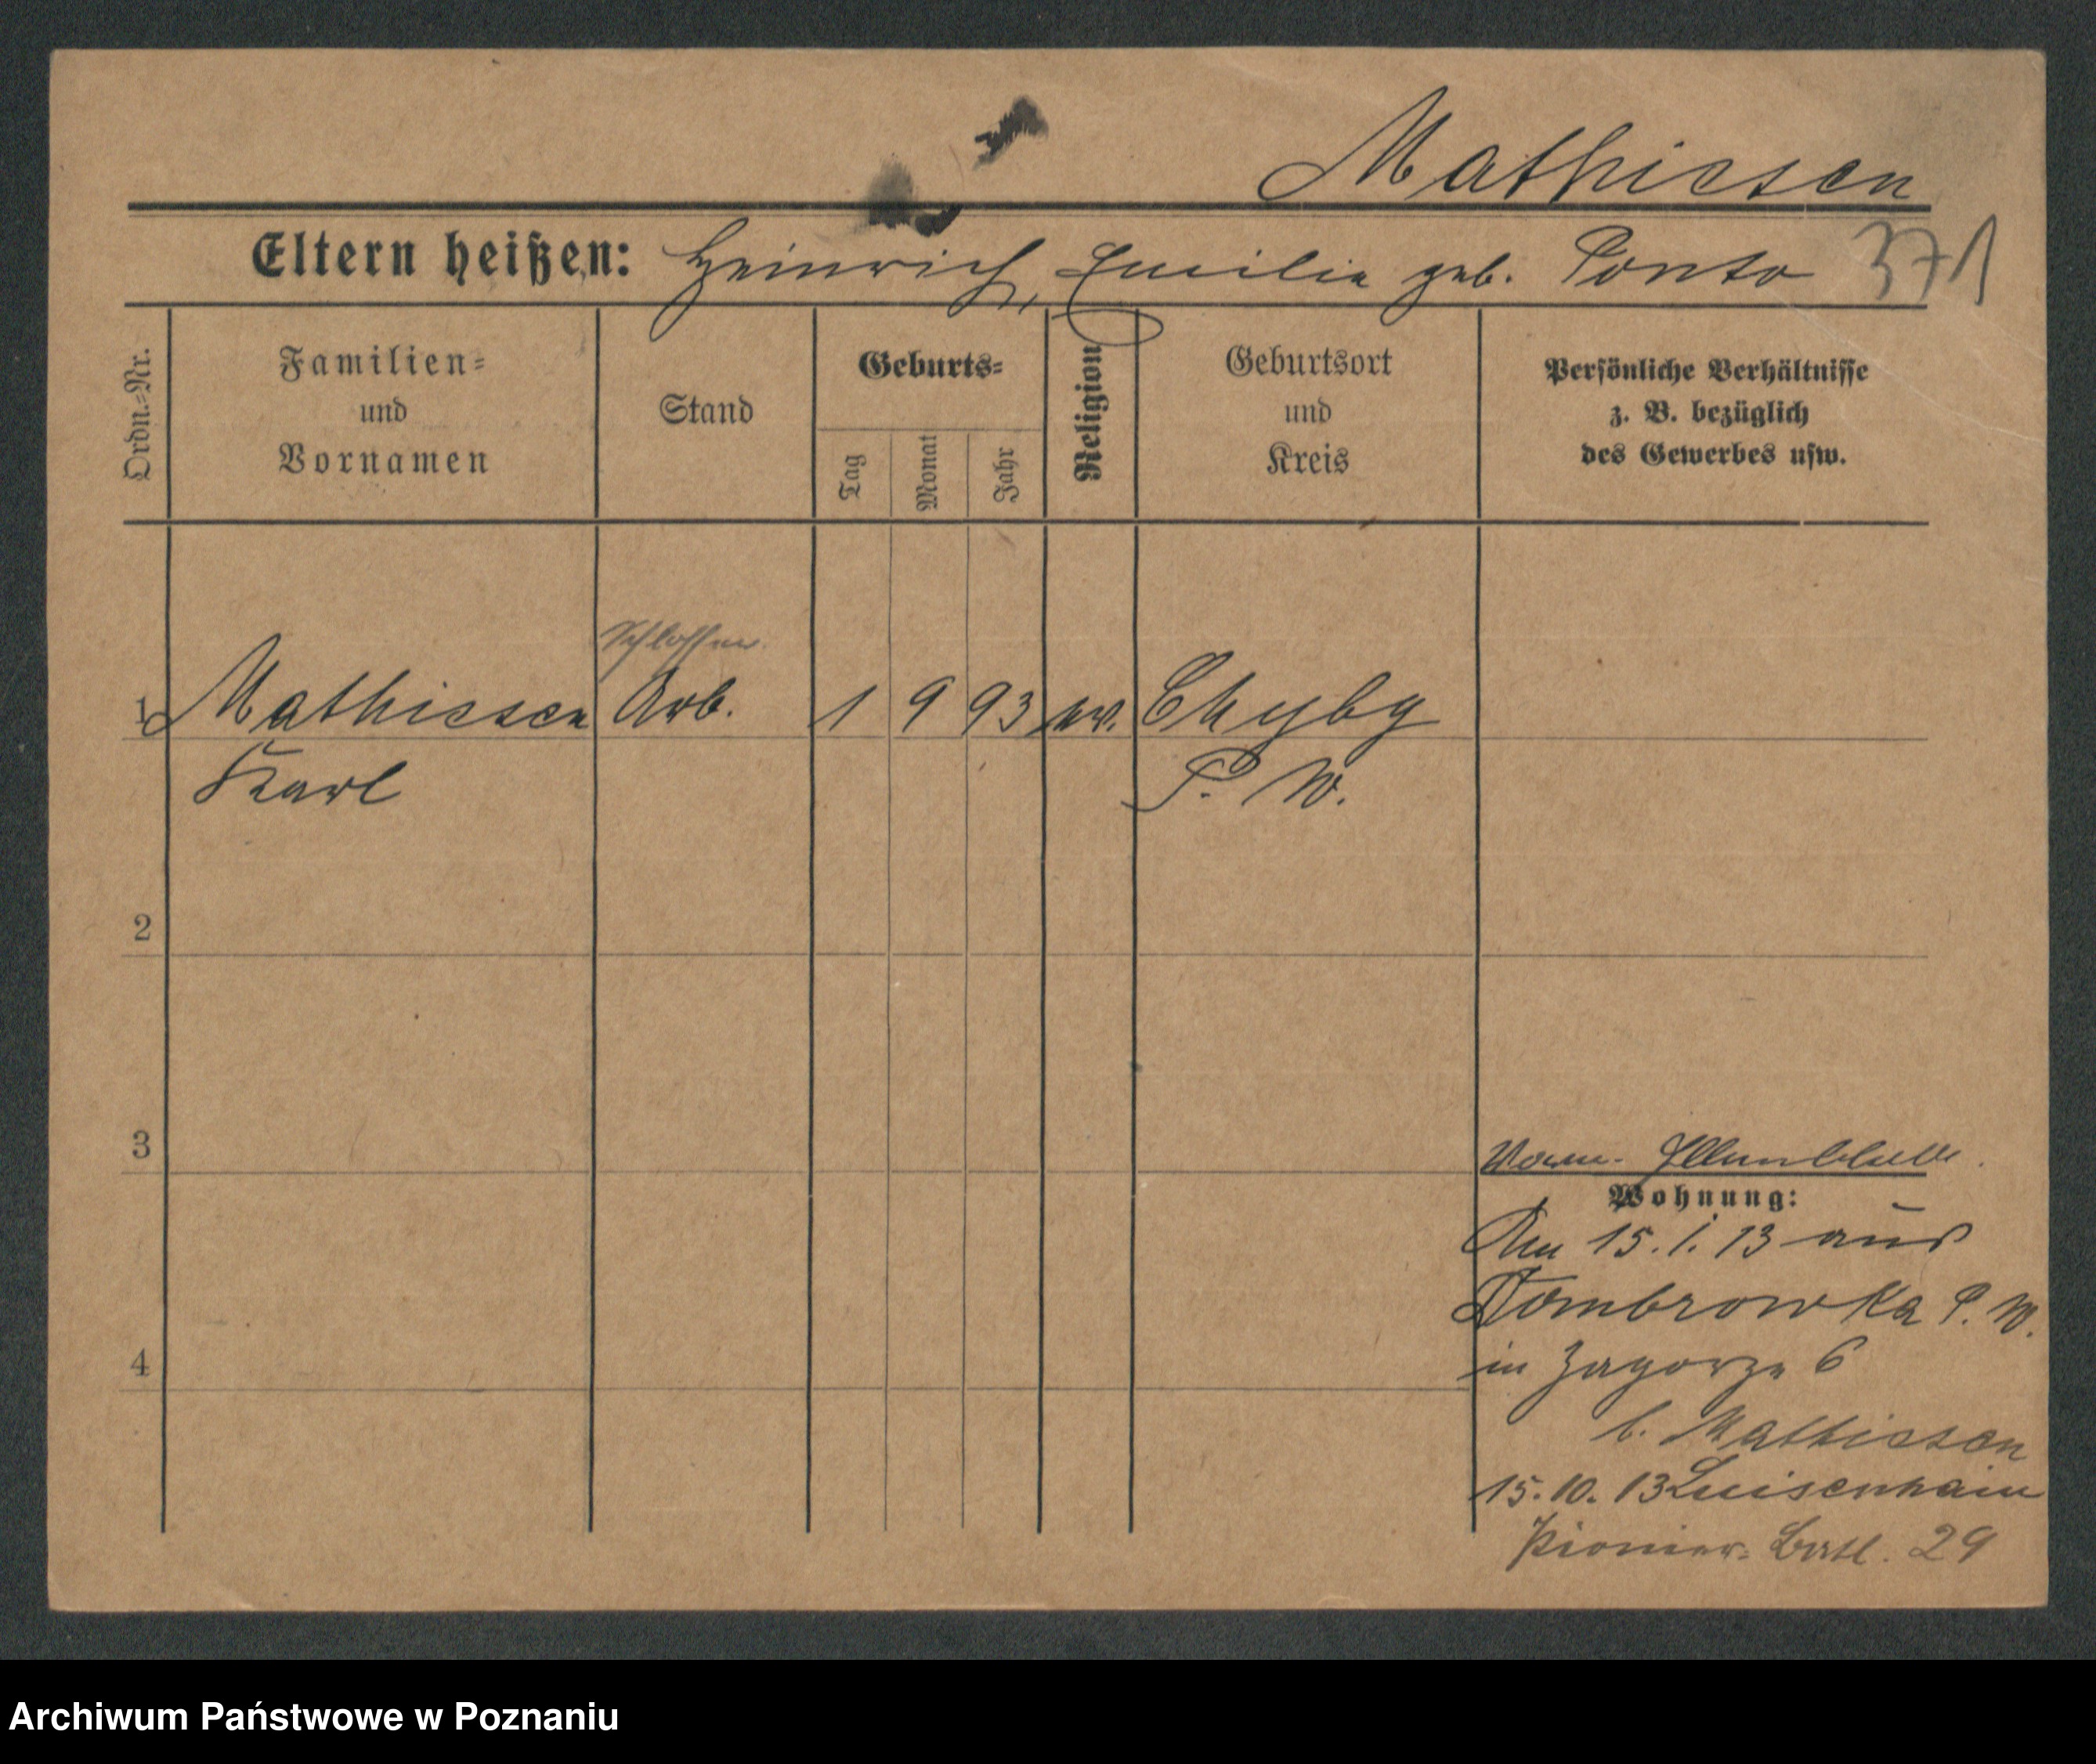 Mathiesen
371
Eltern heißen: Heinrich, Emilie geb. Ponto
Ordn.=Nr.
Familien= und Vornamen
Stand
Geburts=
Tag
Monat
Jahr
Religion
Geburtsort und Kreis
Persönliche Verhältnisse z. B. bezüglich des Gewerbes usw.
Schlosser
1 Mathiesen Arb. 1 9 93 ev. Chyby
Karl P. W.
2
3
4
Wohnung:
Am 15.1.13 aus
Dombrowka P. W.
in Zagorze 6
b. Mathiesen
15.10.13 Luisenhain
Pionier- Batl. 29
Archiwum Państwowe w Poznaniu